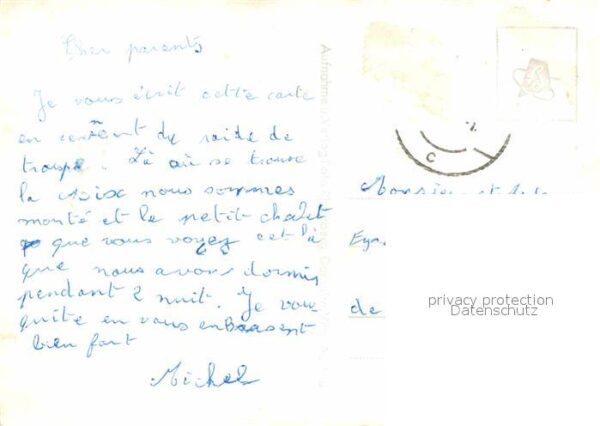 Cher parents
Je vous écrit cette carte
en revenent du raide de
troupe. Là où se trouve
la croix nous sommes
monté et le petit chalet
que vous voyez est là
que nous avons dormis
pendant 2 nuit. Je vous
quite en vous enbrasent
bien fort
Michel
Monsieur et
de
privacy protection
Datenschutz